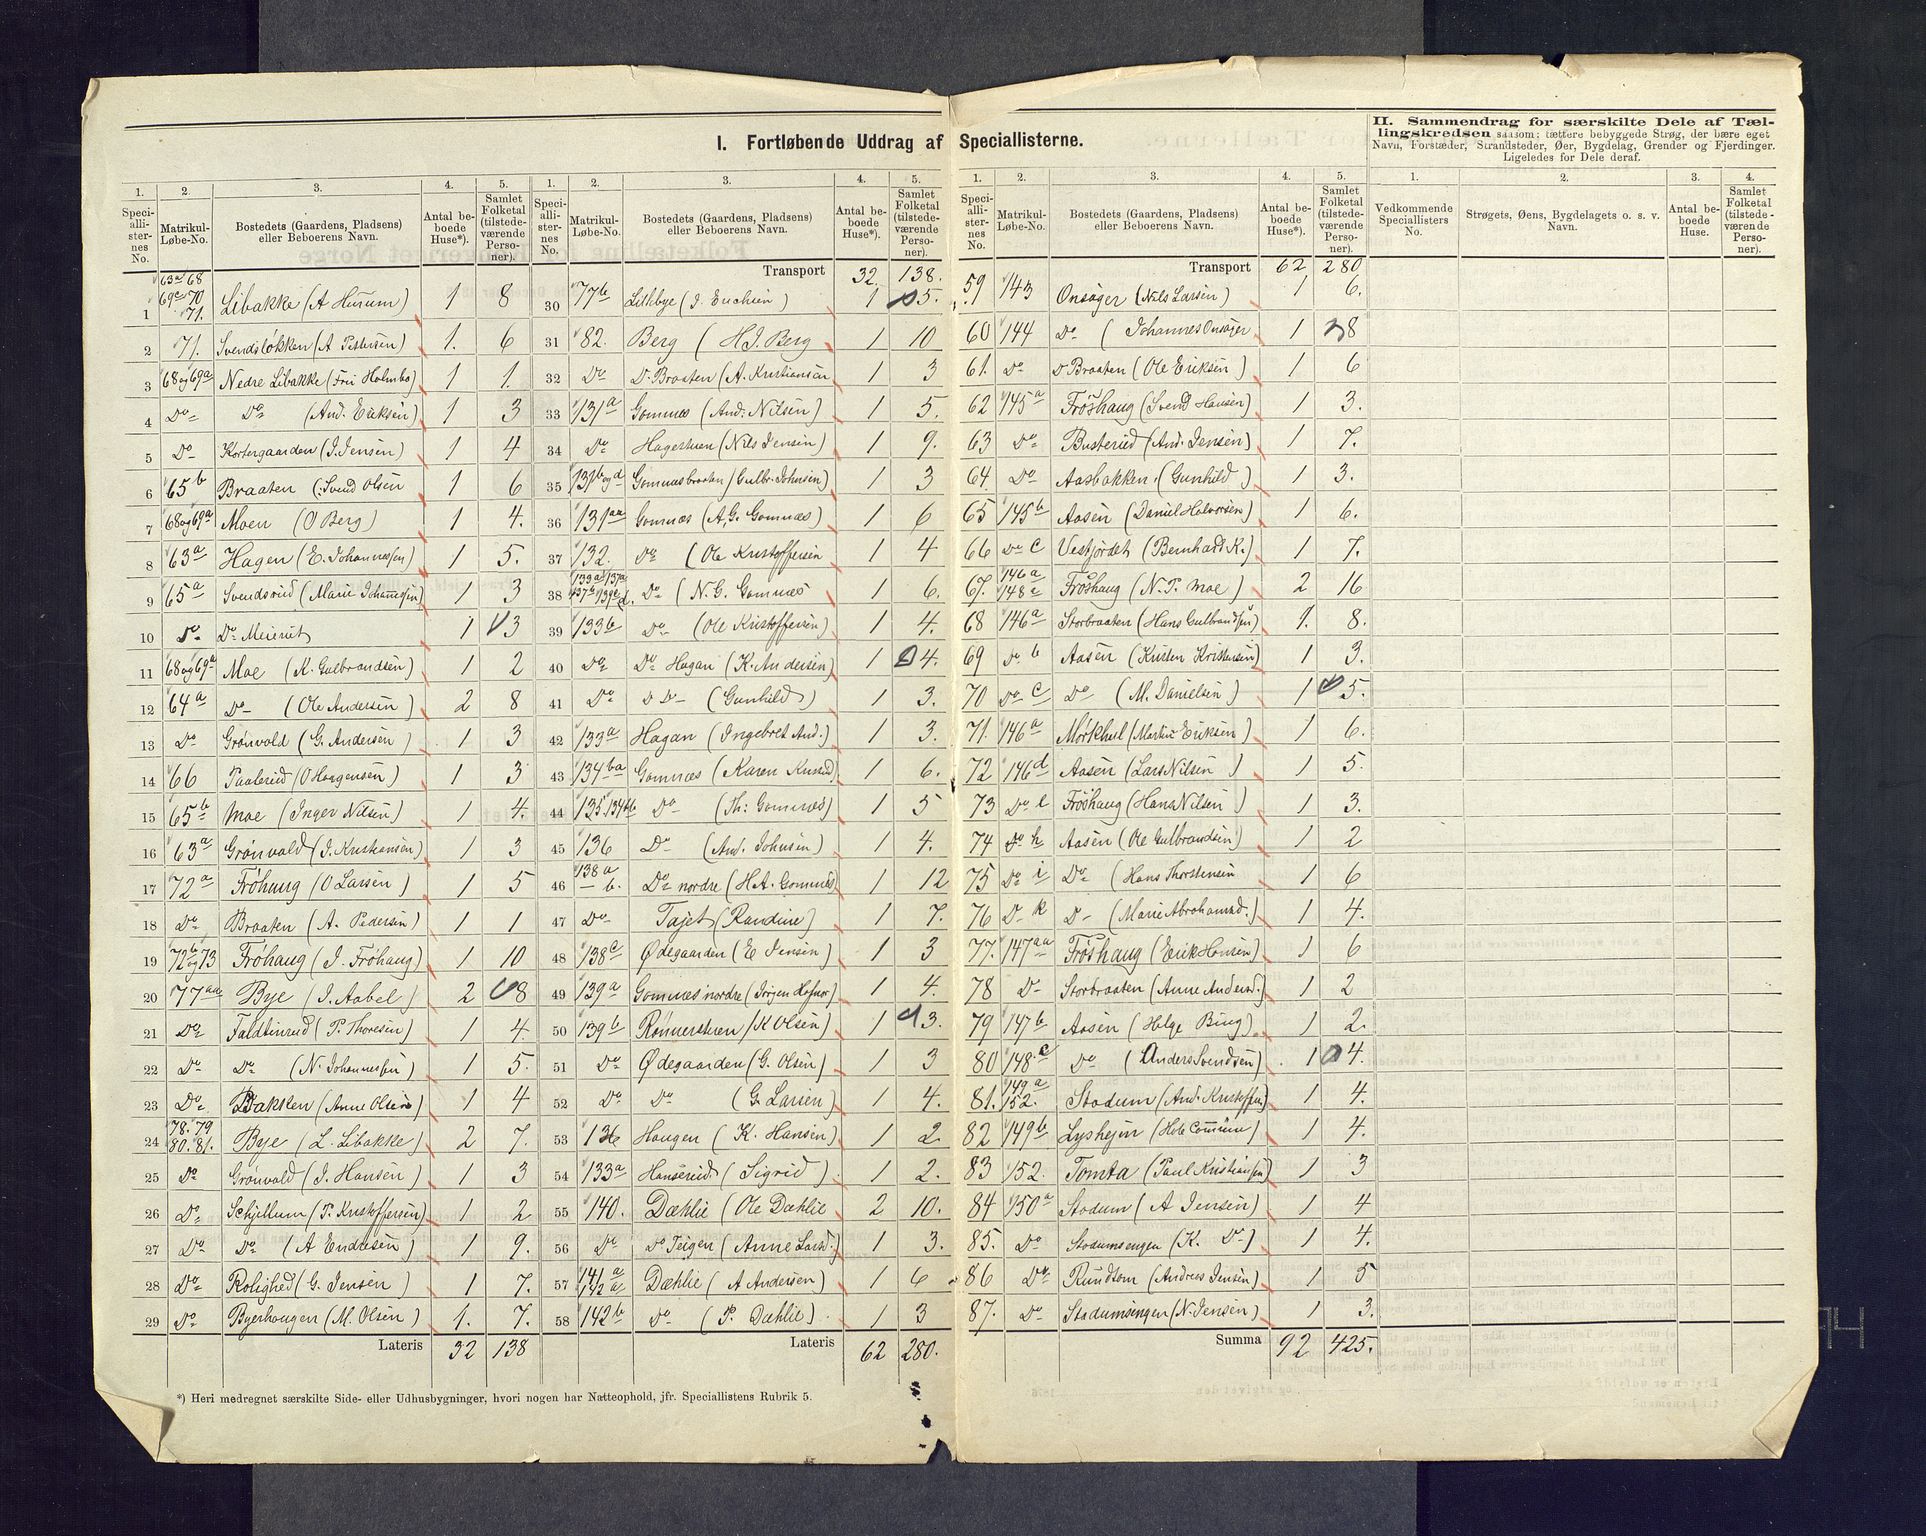 I. Fortløbende Uddrag af Speciallisterne.
II. Sammendrag for særskilte Dele af Tæl-
lingskredsen saasom: tættere bebyggede Strøg, der bære eget
Navn, Forstæder, Strandsteder, Øer, Bygdelag, Grender og Fjerdinger.
Ligeledes for Dele deraf.
1. 2. 3. 4. 5.
Speci-alli-ster-nes No. Matrikul-Løbe-No. Bostedets (Gaardens, Pladsens) eller Beboerens Navn. Antal be-boede Huse*). Samlet Folketal (tilstede-værende Perso-ner).
1 63a 68 69c 70 71. Libakke (A Husum) 1 8
2 71. Svendsløkken (A Pettersen) 1. 6
3 68 og 69a Nedre Libakke (Fri Holmbo) 1 1.
4 Do Do (And. Eriksen) 1 3
5 Do Kortergaarden (J. Jensen) 1 4
6 65b Braaten (Svend Olsen 1 6
7 68 og 69a Moen (O Berg) 1 4.
8 63a Hagen (E. Johannessen) 1 5.
9 65a Svendsrud (Marie Johannessen) 1 3
10 Do Do Meieriet 1 3
11 68 og 69a Moe (K. Gulbrandsen) 1 2
12 64a Do (Ole Andersen) 2 8
13 Do Grønvold (G. Andersen) 1 3
14 66 Paalerud (O Haagensen) 1 3
15 65b Moe (Inger Nilsen) 1 4.
16 63a Grønvold (J. Kristiansen) 1 3
17 72a Fröhaug (O Larsen) 1 5
18 Do Braaten (A. Pedersen) 1 1
19 72b og 73 Fröhaug (J. Fröhaug) 1 10
20 77aa Bye (J. Aabel) 2 8
21 Do Faldtinrud (P. Thoresen) 1 4.
22 Do Do (N. Johannessen) 1 5.
23 Do Bakken (Anne Olsen) 1 4
24 78. 79 80. 81. Bye (L. Libakke) 2 7.
25 Do Grønvold (J. Hansen) 1 3
26 Do Schjellum (P. Kristoffersen) 1 2
27 Do Do (A Endresen) 1 9.
28 Do Rolighed (G. Jensen) 1 7.
29 Do Byerhaugen (M. Olsen) 1. 7.
Lateris 32 138
*) Heri medregnet særskilte Side- eller Udhusbygninger, hvori nogen har Natteophold, jfr. Speciallistens Rubrik 5.
1. 2. 3. 4. 5.
Speci-alli-ster-nes No. Matrikul-Løbe-No. Bostedets (Gaardens, Pladsens) eller Beboerens Navn. Antal be-boede Huse*). Samlet Folketal (tilstede-værende Perso-ner).
Transport 32 138.
30 77b Lillebye (J. Erichsen) 1 5.
31 82. Berg (H J. Berg 1 10
32 Do Do Braaten (A. Kristiansen 1 3
33 131a Gomnes (And. Nilsen) 1 5.
34 Do Hagestuen (Nils Jensen) 1 9.
35 131b og d Gomnesbraaten (Gulbr. Johnsen) 1 3
36 131aa Gomnæs (A. G. Gomnæs) 1 6
37 132. Do (Ole Kristoffersen 1 4
38 Do (N. G. Gomnæs 1 6.
39 133b Do (Ole Kristoffersen) 1 4.
40 Do Do Hagan (K. Andersen) 1 4.
41 Do Do (Gunhild) 1 3.
42 133a Hagan (Ingebret And.) 1 3.
43 134ba Gomnæs (Karen Knrud) 1 6.
44 135. 134bb Do (Th: Gomnæs) 1 5
45 136 Do (And. Johnsen) 1 4.
46 138a b. Do nordre (H A. Gomnæs) 1 12
47 Do Tajet (Randine) 1 7.
48 138c Ødegaarden (E Jensen) 1 3
49 139a Gomnæs nordre (Jörgen Hofnor) 1 4.
50 139b Rønnerstuen (K Olsen) 1 3.
51 Do Ødegaarden (G. Olsen) 1 3
52 Do Do (G Larsen) 1 4.
53 136 Haugen (K. Hansen) 1 2
54 133a Hanserud (Sigrid). 1 2.
55 140. Dæhlie (Ole Dæhlie 2 10.
56 Do Do Teigen (Anne Larsd.) 1 3.
57 141a 142a Dæhlie (A Andersen) 1 6
58 142b Do (P. Dæhlie). 1 3
Lateris 62 280.
1. 2. 3. 4. 5.
Speci-alli-ster-nes No. Matrikul-Løbe-No. Bostedets (Gaardens, Pladsens) eller Beboerens Navn. Antal be-boede Huse*). Samlet Folketal (tilstede-værende Perso-ner).
Transport 62 280
59 143 Onsager (Nils Larsen) 1 6.
60 144 Do (Johannes Onsager 1 8
61. Do Do Braaten (Ole Eriksen) 1 6
62 145a Fröshaug (Svend Hansen) 1 3.
63 Do Busterud (And. Jensen) 1 7.
64. Do Aasbakken (Gunhild) 1 3.
65 145b Aasen (Daniel Halvorsen) 1 6.
66 Do c Vestjordet (Bernhardt K.) 1 7.
67. 146a 148c Fröshaug (N. P. Moe) 2 16
68 146a Storbraaten (Hans Gulbrandsen) 1. 8.
69 Do b Aasen (Kristen Kristensen) 1 3.
70 Do c Do (M. Danielsen) 1 5.
71. 146a Mørkhul (Martin Eriksen) 1 6.
72 146d Aasen (Lars Nilsen) 1 5.
73 Do e Fröshaug (Hans Nilsen) 1 3.
74 Do h Aasen (Ole Gulbrandsen) 1 2
75 Do i Do (Hans Thorstensen 1 6
76 Do k Do (Marie Abrahamsd.) 1 4.
77. 147aa Fröshaug (Erik Hansen) 1 6
78 Do Storbraaten (Anne Andersd.) 1 2
79 147b Aasen (Helge Bing) 1 2.
80 148c Do (Anders Svendsen) 1 4.
81. 149a 152. Stadum (And. Kristoffers) 1 4.
82 149b Lyshejm (Hole Commune) 1 4.
83 152. Tomta (Paul Kristiansen) 1 3
84 150a Stadum (A Jensen) 1 4
85. Do Stadumsengen (K. Do) 1 4.
86 Do Rundtom (Andreas Jensen) 1 5
87. Do Stadumsengen (N. Jensen) 1 3.
Summa 92 425.
1. 2. 3. 4.
Vedkommende Speciallisters No. Strøgets, Øens, Bygdelagets o. s. v. Navn. Antal be-boede Huse. Samlet Folketal (tilstede-værende Perso-ner).